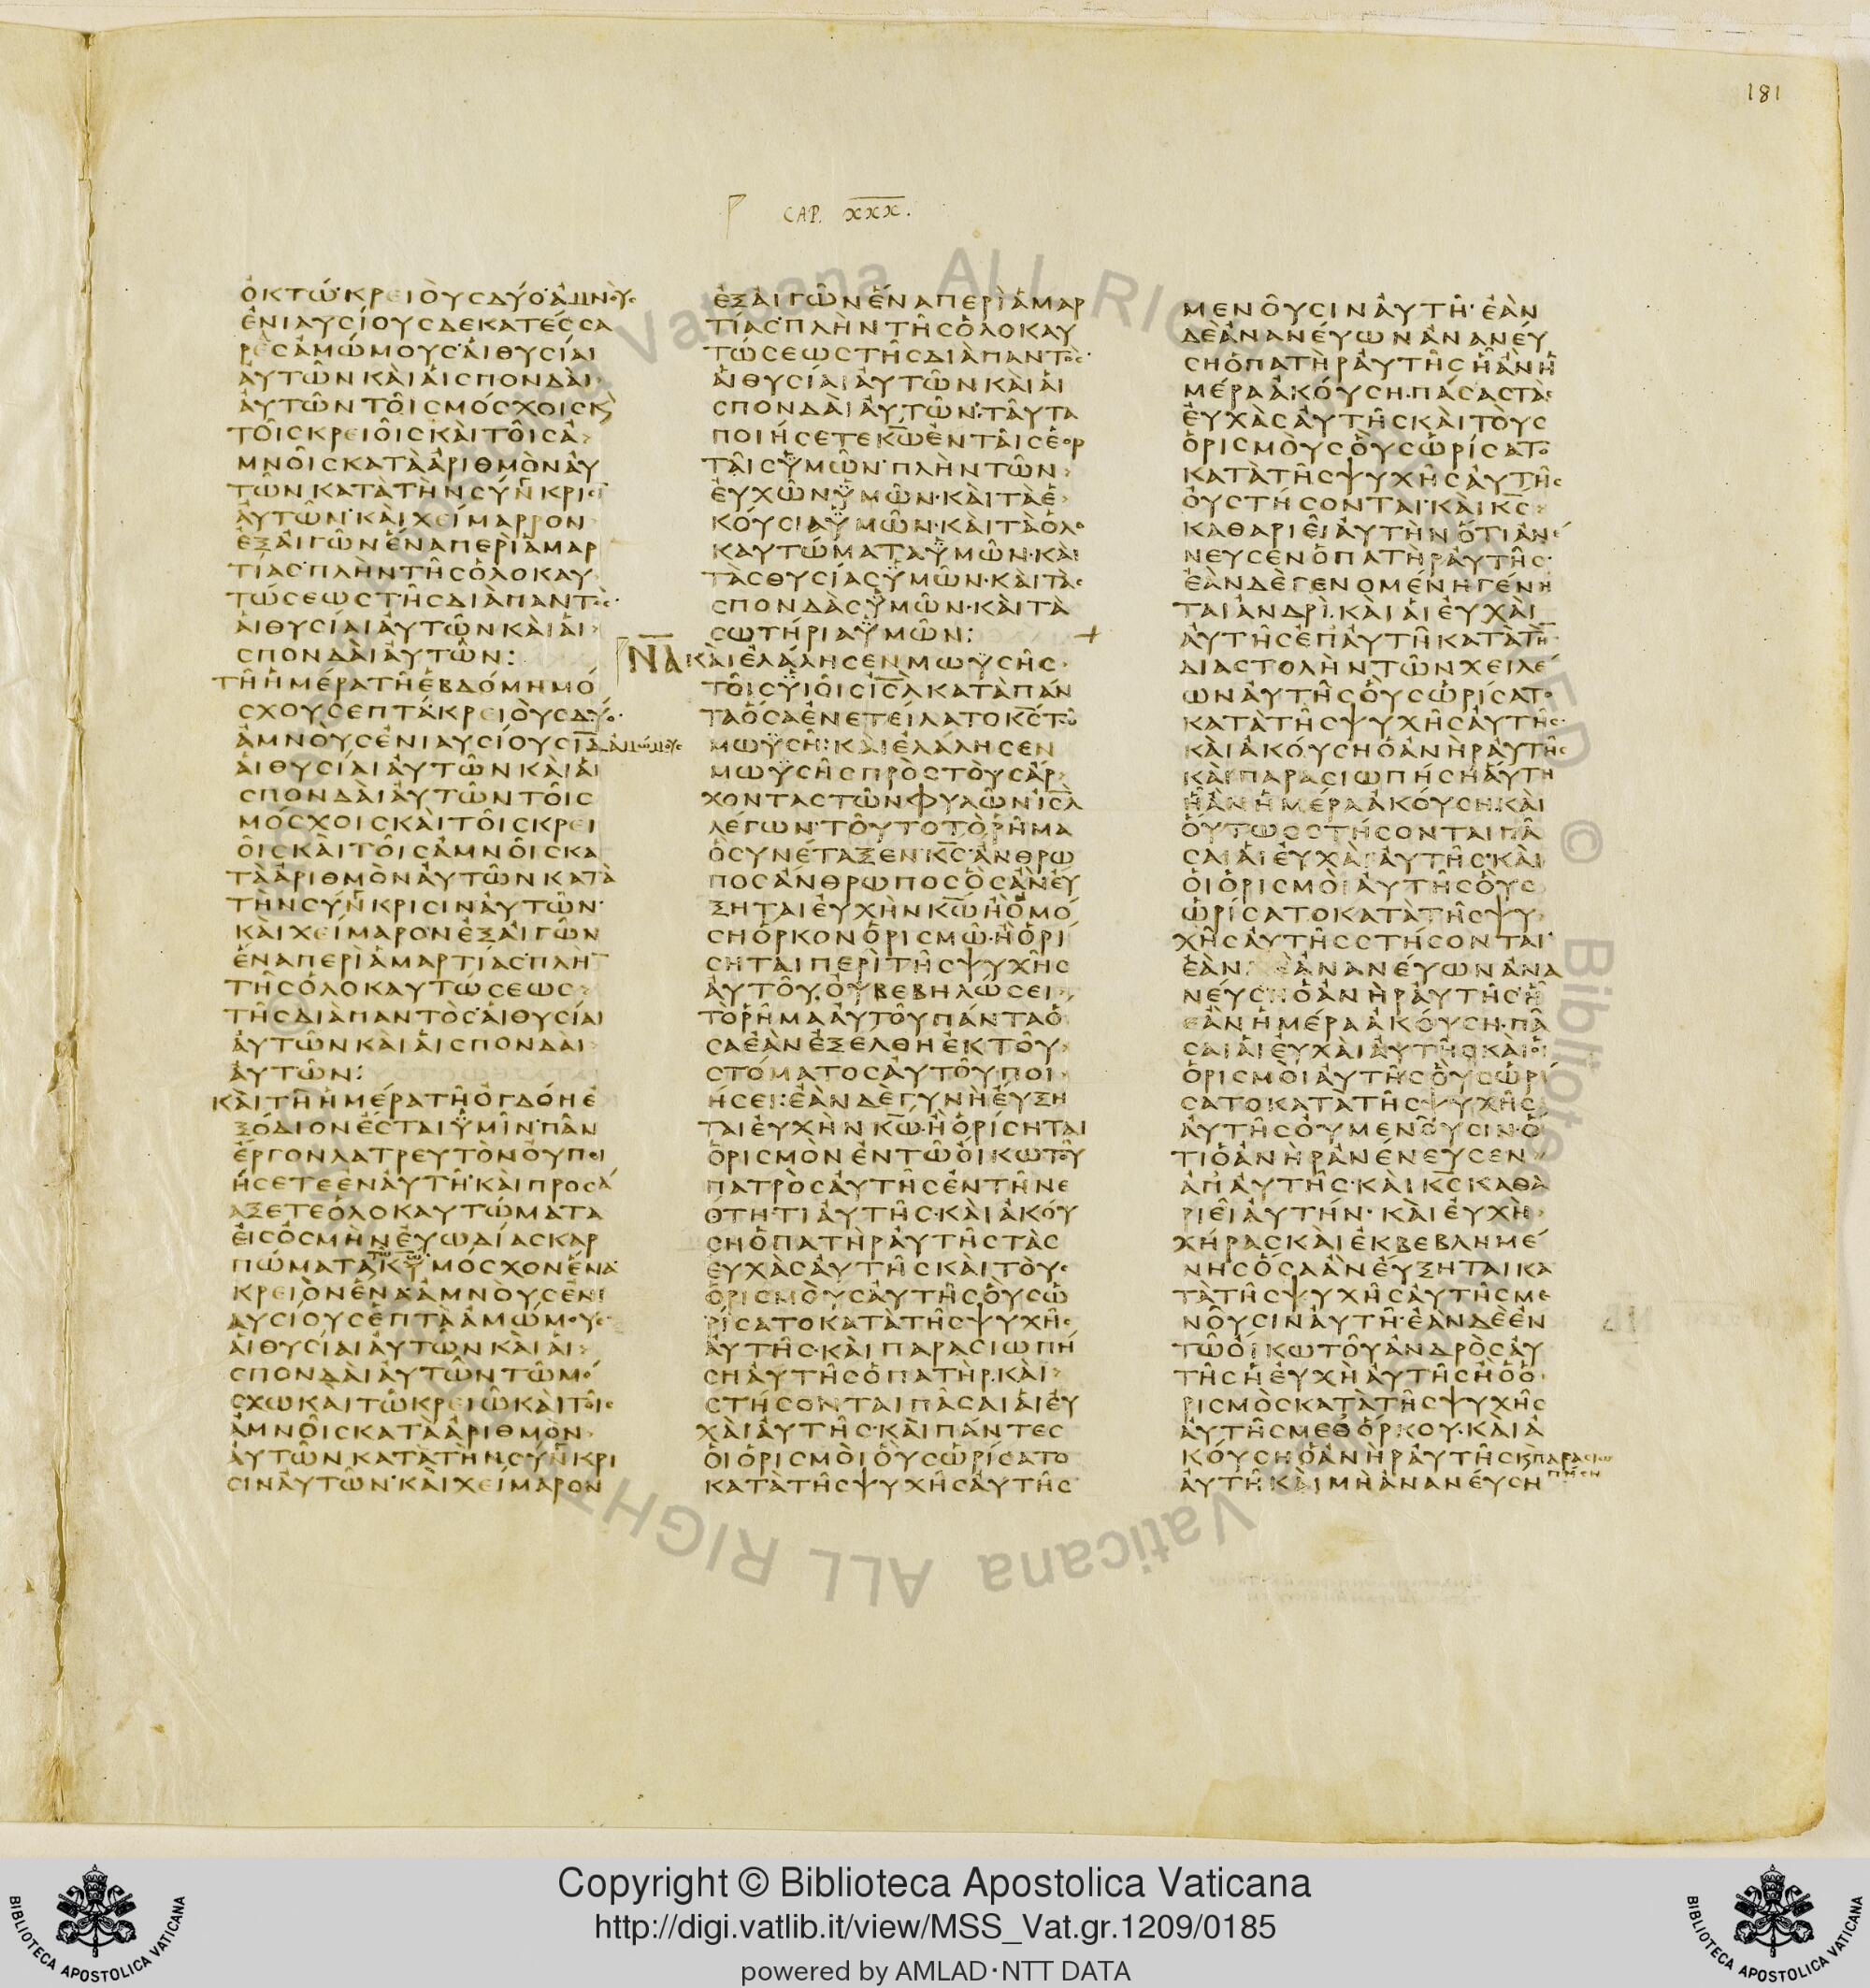 181
CAP. XXX.
ὀκτώ· κρειοὺς δύο· ἀμνοὺς
ἐνιαυσίους δεκατέσσα
ρες ἀμώμους· αἱ θυσίαι
αὐτῶν καὶ αἱ σπονδαὶ
αὐτῶν τοῖς μόσχοις κ̀
τοῖς κρειοῖς καὶ τοῖς ἀ
μνοῖς κατὰ ἀριθμὸν αὐ
τῶν κατὰ τὴν σύνκρισῖ
αὐτῶν· καὶ χείμαρρον
ἐξ αἰγῶν ἕνα περὶ ἁμαρ
τίας· πλὴν τῆς ὁλοκαυ
τώσεως τῆς διὰ παντός·
αἱ θυσίαι αὐτῶν καὶ αἱ
σπονδαὶ αὐτῶν:
τῆ ἡμέρα τῆ ἑβδόμη μό
σχους ἑπτά κρειοὺς δύο·
ἀμνοὺς ἐνιαυσίους ι̅δ̅ ἀμώμους
αἱ θυσίαι αὐτῶν καὶ αἱ
σπονδαὶ αὐτῶν τοῖς
μόσχοις καὶ τοῖς κρει
οῖς καὶ τοῖς ἀμνοῖς κα
τὰ ἀριθμὸν αὐτῶν κατὰ
τὴν σύνκρισιν αὐτῶν·
καὶ χείμαρον ἐξ αἰγῶν
ἕνα περὶ ἁμαρτίας· πλὴ̅
τῆς ὁλοκαυτώσεως
τῆς διὰ παντός· αἱ θυσίαι
αὐτῶν καὶ αἱ σπονδαὶ
αὐτῶν:
καὶ τῆ ἡμέρα τῆ ὀγδόη ἐ
ξόδιον ἔσται ὑμῖν· πᾶν
ἔργον λατρευτὸν οὐ ποι
ήσετε ἐν αὐτῆ· καὶ προσά
αξετε ὁλοκαυτώματα
εἰς ὀσμὴν εὐωδίας καρ
πώματα τῶ κ̅ω̅ μόσχον ἕνα
κρειὸν ἕνα ἀμνοὺς ἐνι
αυσίους ἑπτὰ ἀμώμους·
αἱ θυσίαι αὐτῶν καὶ αἱ
σπονδαὶ αὐτῶν τῶ μό
σχω καὶ τῶ κρειῶ καὶ τοῖς
ἀμνοῖς κατὰ ἀριθμὸν
αὐτῶν κατὰ τὴν σύνκρι
σιν αὐτῶν· καὶ χείμαρον
ἐξ αἰγῶν ἕνα περὶ ἁμαρ
τίας· πλὴν τῆς ὁλοκαυ
τώσεως τῆς διὰ παντός·
αἱ θυσίαι αὐτῶν καὶ αἱ
σπονδαὶ αὐτῶν· ταῦτα
ποιήσετε κ̅ω̅ ἐν ταῖς ἑορ
ταῖς ὑμῶν· πλὴν τῶν
εὐχῶν ὑμῶν· καὶ τὰ ἑ
κούσια ὑμῶν· καὶ τὰ ὁλο
καυτώματα ὑμῶν· καὶ
τὰς θυσίας ὑμῶν· καὶ τὰς
σπονδὰς ὑμῶν· καὶ τὰ
σωτήρια ὑμῶν:
Ν̅Α̅ καὶ ἐλάλησεν Μωϋσῆς
τοῖς ϋἱοῖς ι̅σ̅λ̅ κατὰ πάν
τα ὅσα ἐνετείλατο κ̅ς̅ τῶ
Μωϋσῆ: καὶ ἐλάλησεν
Μωϋσῆς πρὸς τοὺς ἄρ
χοντας τῶν φυλῶν ι̅σ̅λ̅
λέγων· τοῦτο τὸ ῥῆμα
ὃ συνέταξεν κ̅ς̅· ἄνθρω
πος ἄνθρωπος ὃς ἂν εὔ
ξηται εὐχὴν κ̅ω̅ ἢ ὀμό
ση ὅρκον ὁρισμῶ· ἢ ὁρί
σηται περὶ τῆς ψυχῆς
αὐτοῦ, οὐ βεβηλώσει
τὸ ῥῆμα αὐτοῦ πάντα ὅ
σα ἐὰν ἐξέλθη ἐκ τοῦ
στόματος αὐτοῦ ποι
ήσει: ἐὰν δὲ γυνὴ εὔξη
ται εὐχὴν κ̅ω̅· ἢ ὁρίσηται
ὁρισμὸν ἐν τῶ οἴκω τοῦ
πατρὸς αὐτῆς ἐν τῆ νε
ότητι αὐτῆς· καὶ ἀκού
ση ὁ πατὴρ αὐτῆς τὰς
εὐχὰς αὐτῆς καὶ τοὺς
ὁρισμοὺς αὐτῆς οὓς ὡ
ρίσατο κατὰ τῆς ψυχῆς
αὐτῆς· καὶ παρασιωπή
ση αὐτῆς ὁ πατὴρ. καὶ
στήσονται πᾶσαι αἱ εὐ
χαὶ αὐτῆς· καὶ πάντες
οἱ ὁρισμοὶ οὓς ὡρίσατο
κατὰ τῆς ψυχῆς αὐτῆς
μενοῦσιν αὐτῆ· ἐὰν
δὲ ἀνανεύων ἀνανεύ
ση ὁ πατὴρ αὐτῆς ἧ ἂν ἡ
μέρα ἀκούση· πάσας τὰς
εὐχὰς αὐτῆς καὶ τοὺς
ὁρισμοὺς οὓς ὡρίσατο
κατὰ τῆς ψυχῆς αὐτῆς
οὐ στήσονται· καὶ κ̅ς̅
καθαριεῖ αὐτὴν ὅτι ἀνέ
νευσεν ὁ πατὴρ αὐτῆς·
ἐὰν δὲ γενομένη γένη
ται ἀνδρὶ. καὶ αἱ εὐχαὶ
αὐτῆς ἐπ' αὐτῆ κατὰ τὴ̅
διαστολὴν τῶν χειλέ
ων αὐτῆς οὓς ὡρίσατο
κατὰ τῆς ψυχῆς αὐτῆς·
καὶ ἀκούση ὁ ἀνὴρ αὐτῆς
καὶ παρασιωπήση αὐτῆ
ἧ ἂν ἡμέρα ἀκούση· καὶ
οὕτως στήσονται πᾶ
σαι αἱ εὐχαὶ αὐτῆς· καὶ
οἱ ὁρισμοὶ αὐτῆς οὓς
ὡρίσατο κατὰ τῆς ψυ
χῆς αὐτῆς στήσονται·
ἐὰν δὲ ἀνανεύων ἀνα
νεύση ὁ ἀνὴρ αὐτῆς· ἧ
ἐὰν ἡμέρα ἀκούση· πᾶ
σαι αἱ εὐχαὶ αὐτῆς καὶ οἱ
ὁρισμοὶ αὐτῆς οὓς ὡρί
σατο κατὰ τῆς ψυχῆς
αὐτῆς οὐ μενοῦσιν· ὅ
τι ὁ ἀνὴρ ἀνένευσεν
ἀπ' αὐτῆς· καὶ κ̅ς̅ καθα
ριεῖ αὐτήν· καὶ εὐχὴ
χήρας καὶ ἐκβεβλημέ
νης ὅσα ἂν εὔξηται κα
τὰ τῆς ψυχῆς αὐτῆς με
νοῦσιν αὐτῆ· ἐὰν δὲ ἐν
τῶ οἴκω τοῦ ἀνδρὸς αὐ
τῆς ἡ εὐχὴ αὐτῆς ἢ ὁ ὁ
ρισμὸς κατὰ τῆς ψυχῆς
αὐτῆς μεθ' ὅρκου· καὶ ἀ
κούση ὁ ἀνὴρ αὐτῆς κ̀ παρασιω
πήση
αὐτῆ καὶ μὴ ἀνανεύση
Copyright © Biblioteca Apostolica Vaticana
http://digi.vatlib.it/view/MSS_Vat.gr.1209/0185
powered by AMLAD·NTT DATA
BIBLIOTECA APOSTOLICA VATICANA
BIBLIOTECA APOSTOLICA VATICANA